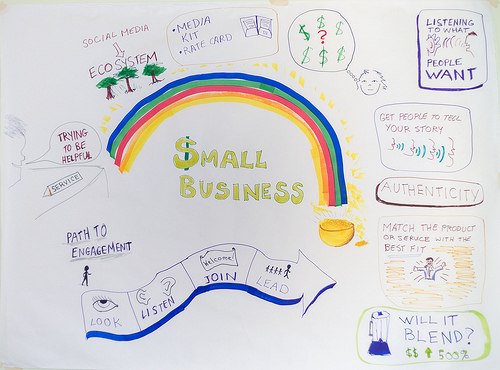 SOCIAL MEDIA
ECOSYSTEM
• MEDIA
KIT
• RATE CARD
$ $ $
$ ? $
$ $ $
LISTENING
TO WHAT
PEOPLE
WANT
TRYING
TO BE
HELPFUL
SERVICE
$MALL
BUSINESS
GET PEOPLE TO TELL
YOUR STORY
AUTHENTICITY
MATCH THE PRODUCT
OR SERVICE WITH THE
BEST FIT
PATH TO
ENGAGEMENT
LOOK
LISTEN
Welcome
JOIN
LEAD
WILL IT
BLEND?
$$ ↑ 500%